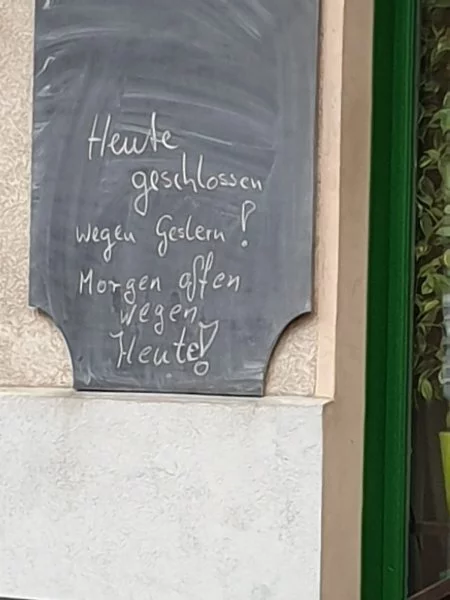 Heute
geschlossen
wegen Gestern!
Morgen offen
wegen
Heute!